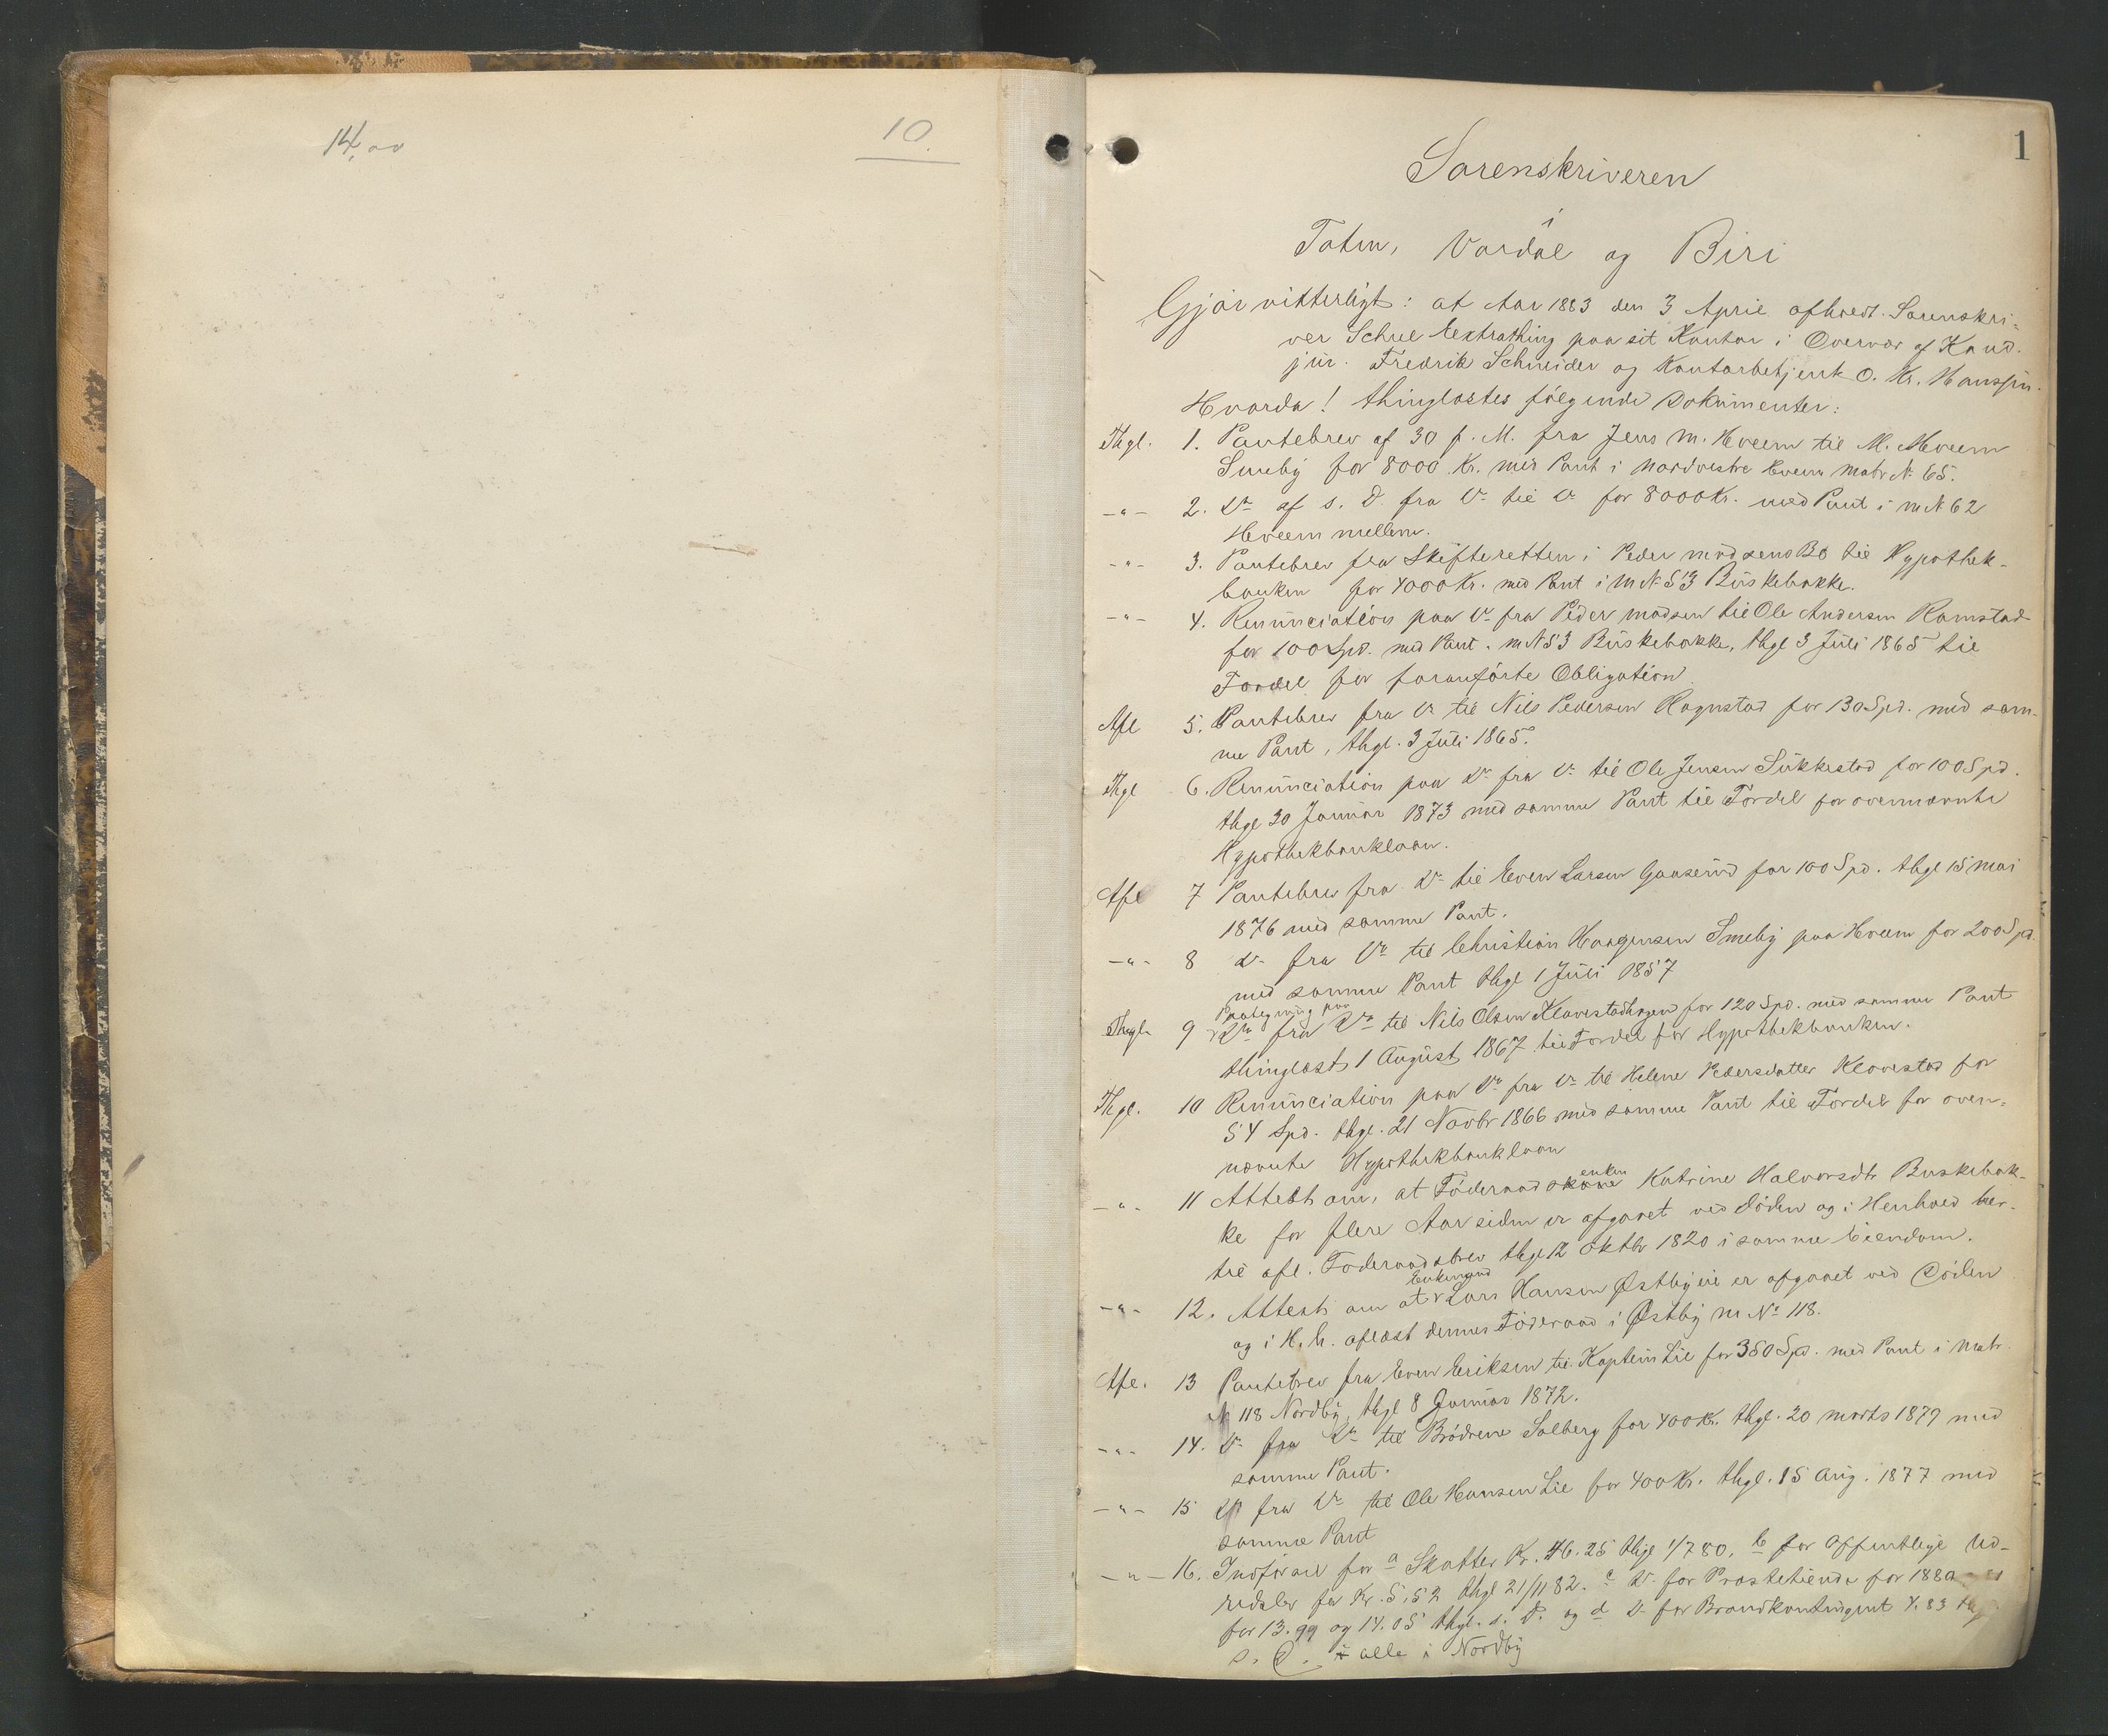 14,00
10.
1
Sorenskriveren
i
Toten, Vardal og Biri
Gjør vitterligt: at Aar 1883 den 3 April afholdt Sorenskri-
ver Schee Extrathing paa sit Kontor i Overvær af Kand.
jur. Fredrik Schneider og Kontorbetjent O. Kr. Hanssen.
Hvorda! thinglæstes følgende Dokumenter:
Thgl. 1. Pantebrev af 30 f. M. fra Jens M. Hveem til M. Hveem
Smeby for 8000 Kr. med Pant i nordvestre Hveem Matr. N. 65.
-"- 2. Do af s. D. fra Do til Do for 8000 Kr. med Pant i m N 62
Hveem mellem.
-"- 3. Pantebrev fra Skifteretten i Peder Madsens Bo til Hypothek-
banken for 4000 Kr. med Pant i M N. 53 Buskebakke.
-"- 4. Renunciation paa Do fra Peder Madsen til Ole Andersen Ramstad
for 100 Spd. med Pant i m N 53 Buskebakke, thgl 3 Juli 1865 til
Fordel for foranførte Obligation
Afl 5. Pantebrev fra Do til Nils Pedersen Hagustad for 130 Spd. med sam-
me Pant, thgl. 3 Juli 1865.
Thgl 6. Renunciation paa Do fra Do til Ole Jensen Sukkestad for 100 Spd.
thgl 30 Januar 1873 med samme Pant til Fordel for ovennævnte
Hypothekbanklaan.
Afl 7 Pantebrev fra Do til Even Larsen Gaaserud for 100 Spd. thgl 15 Mai
1876 med samme Pant.
-"- 8 Do fra Do til Christian Haagensen Smeby paa Hveem for 200 Spd.
med samme Pant thgl 1 Juli 1857
Paategning paa
Thgl 9 Do fra Do til Nils Olsen Klavestadhagen for 120 Spd. med samme Pant
thinglæst 1 August 1867 til Fordel for Hypothekbanken.
Thgl. 10 Renunciation paa Do fra Do til Helene Pedersdatter Klovestad for
54 Spd. thgl. 21 Novbr 1866 med samme Pant til Fordel for oven-
nævnte Hypothekbanklaan
enken
-"- 11 Attest om, at Föderaadskone Katrine Halvorsdtr Buskebak-
ke for flere Aar siden er afgaaet ved Döden og i Henhold her-
til afl. Föderaadsbrev thgl 12 Oktbr 1820 i samme Eiendom.
Enkemand
-"- 12. Attest om at Lars Hansen Østbyeie er afgaaet ved Döden
og i H. h. aflæst dennes Föderaad i Østby M No 118.
Afl. 13 Pantebrev fra Even Eriksen til Kaptein Lie for 350 Spd. med Pant i Matr.
N 118 Nordby, thgl 8 Januar 1872.
-"- 14. Do fra Do til Brödrene Solberg for 400 Kr. thgl. 20 Marts 1879 med
samme Pant.
-"- 15 Do fra Do til Ole Hansen Lie for 400 Kr. thgl. 15 Aug. 1877 med
samme Pant
-"- 16. Indførsel for a Skatter Kr. 46.25 thgl 1/7 80, b for offentlige Ud-
redsler for Kr. 5,52 thgl 21/11 82. c Do for Prestetiende for 1880
for 13.99 og 14.05 thgl. s. D. og d Do for Brandkontingent 4.83
s. D. alle i Nordby